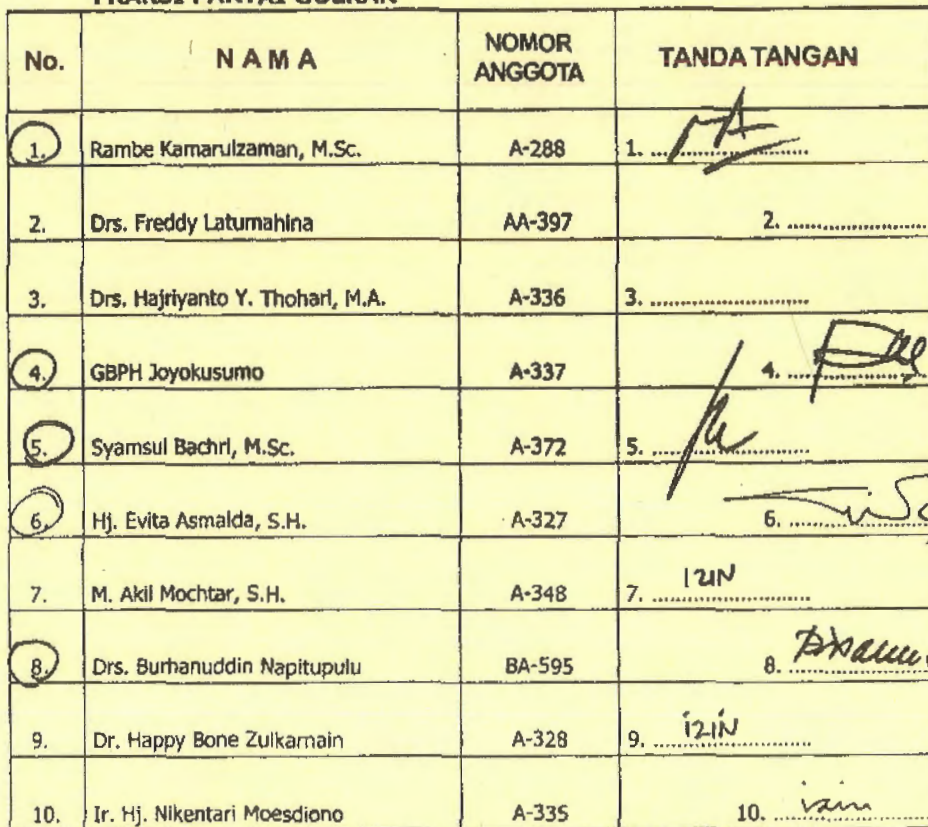 FRAKSI PARTAI GOLKAR
No. NAMA NOMOR ANGGOTA TANDA TANGAN
1. Rambe Kamarulzaman, M.Sc. A-288 1. ....................
2. Drs. Freddy Latumahina AA-397 2. ....................
3. Drs. Hajriyanto Y. Thohari, M.A. A-336 3. ....................
4. GBPH Joyokusumo A-337 4. ....................
5. Syamsul Bachri, M.Sc. A-372 5. ....................
6. Hj. Evita Asmalda, S.H. A-327 6. ....................
7. M. Akil Mochtar, S.H. A-348 7. IZIN
8. Drs. Burhanuddin Napitupulu BA-595 8. ....................
9. Dr. Happy Bone Zulkarnain A-328 9. iZIN
10. Ir. Hj. Nikentari Moesdiono A-335 10. izin